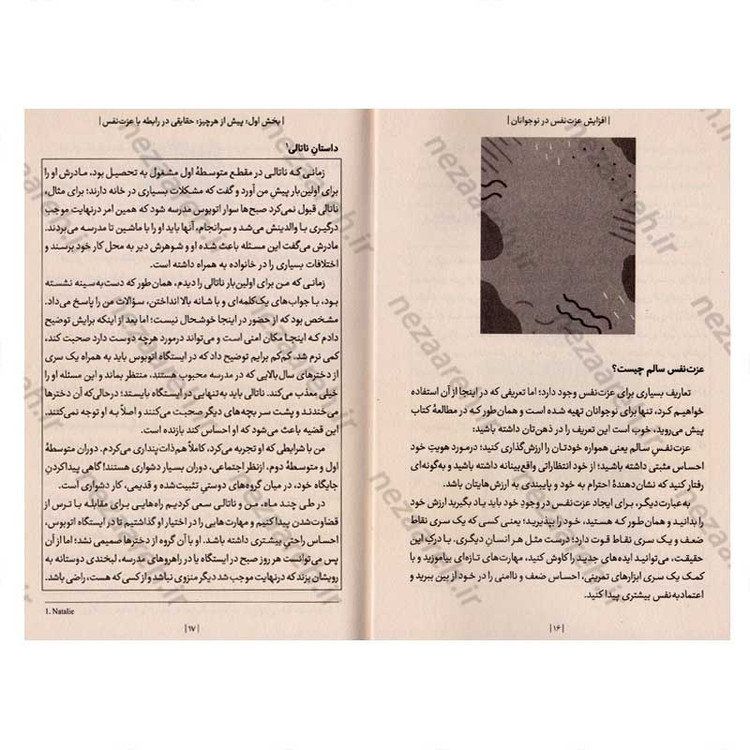 | افزایش عزت‌نفس در نوجوانان |
عزت‌نفس سالم چیست؟
تعاریف بسیاری برای عزت‌نفس وجود دارد؛ اما تعریفی که در اینجا از آن استفاده
خواهیم کرد، تنها برای نوجوانان تهیه شده است و همان‌طور که در مطالعهٔ کتاب
پیش می‌روید، خوب است این تعریف را در ذهن‌تان داشته باشید:
عزت‌نفس سالم یعنی همواره خودتان را ارزش‌گذاری کنید؛ درمورد هویت خود
احساس مثبتی داشته باشید؛ از خود انتظاراتی واقع‌بینانه داشته باشید و به‌گونه‌ای
رفتار کنید که نشان‌دهندهٔ احترام به خود و پایبندی به ارزش‌هایتان باشد.
به‌عبارت‌دیگر، برای ایجاد عزت‌نفس در وجودِ خود باید یاد بگیرید ارزش خود
را بدانید و همان‌طور که هستید، خود را بپذیرید؛ یعنی کسی که یک سری نقاط
ضعف و یک سری نقاط قوت دارد؛ درست مثل هر انسانِ دیگری. با درک این
حقیقت، می‌توانید ایده‌های جدید را کاوش کنید، مهارت‌های تازه‌ای بیاموزید و با
کمک یک سری ابزارهای تمرینی، احساس ضعف و ناامنی را در خود از بین ببرید و
اعتمادبه‌نفس بیشتری پیدا کنید.
| ۱۶ |
| بخش اول: پیش از هرچیز: حقایقی در رابطه با عزت‌نفس |
داستانِ ناتالی۱
زمانی که ناتالی در مقطع متوسطهٔ اول مشغول به تحصیل بود، مادرش او را
برای اولین‌بار پیشِ من آورد و گفت که مشکلات بسیاری در خانه دارند؛ برای مثال،
ناتالی قبول نمی‌کرد صبح‌ها سوار اتوبوس مدرسه شود که همین امر درنهایت موجب
درگیری با والدینش می‌شد و سرانجام، آنها باید او را با ماشین تا مدرسه می‌بردند.
مادرش می‌گفت این مسئله باعث شده او و شوهرش دیر به محل کار خود برسند و
اختلافات بسیاری را در خانواده به همراه داشته است.
زمانی که من برای اولین‌بار ناتالی را دیدم، همان‌طور که دست‌به‌سینه نشسته
بود، با جواب‌های یک‌کلمه‌ای و با شانه بالا انداختن، سؤالات من را پاسخ می‌داد.
مشخص بود که از حضور در اینجا خوشحال نیست؛ اما بعد از اینکه برایش توضیح
دادم که اینجا مکان امنی است و می‌تواند درمورد هرچه دوست دارد صحبت کند،
کمی نرم شد. کم‌کم برایم توضیح داد که در ایستگاه اتوبوس باید به همراه یک سری
از دخترهای سال‌بالایی که در مدرسه محبوب هستند، منتظر بماند و این مسئله او را
خیلی معذب می‌کند. ناتالی باید به‌تنهایی در ایستگاه بایستد؛ درحالی‌که آن دخترها
می‌خندند و پشت سر بچه‌های دیگر صحبت می‌کنند و اصلاً به او توجه نمی‌کنند.
این قضیه باعث می‌شود که او احساس کند بازنده است.
من با شرایطی که او تجربه می‌کرد، کاملاً هم‌ذات‌پنداری می‌کردم. دوران متوسطهٔ
اول و متوسطهٔ دوم، ازنظر اجتماعی، دوران بسیار دشواری هستند! گاهی پیداکردنِ
جایگاه خود، در میان گروه‌های دوستیِ تثبیت‌شده و قدیمی، کار دشواری است.
در طی چند ماه، من و ناتالی سعی کردیم راه‌هایی برای مقابله با ترس از
قضاوت‌شدن پیدا کنیم و مهارت‌هایی را در اختیار او گذاشتیم تا در ایستگاه اتوبوس،
احساس راحتیِ بیشتری داشته باشد. او با آن گروه از دخترها صمیمی نشد؛ اما از آن
پس می‌توانست هر روز صبح در ایستگاه یا در راهروهای مدرسه، لبخندی دوستانه به
رویشان بزند که درنهایت موجب شد دیگر منزوی نباشد و از کسی که هست، راضی باشد.
1. Natalie
| ۱۷ |
nezaareh.ir